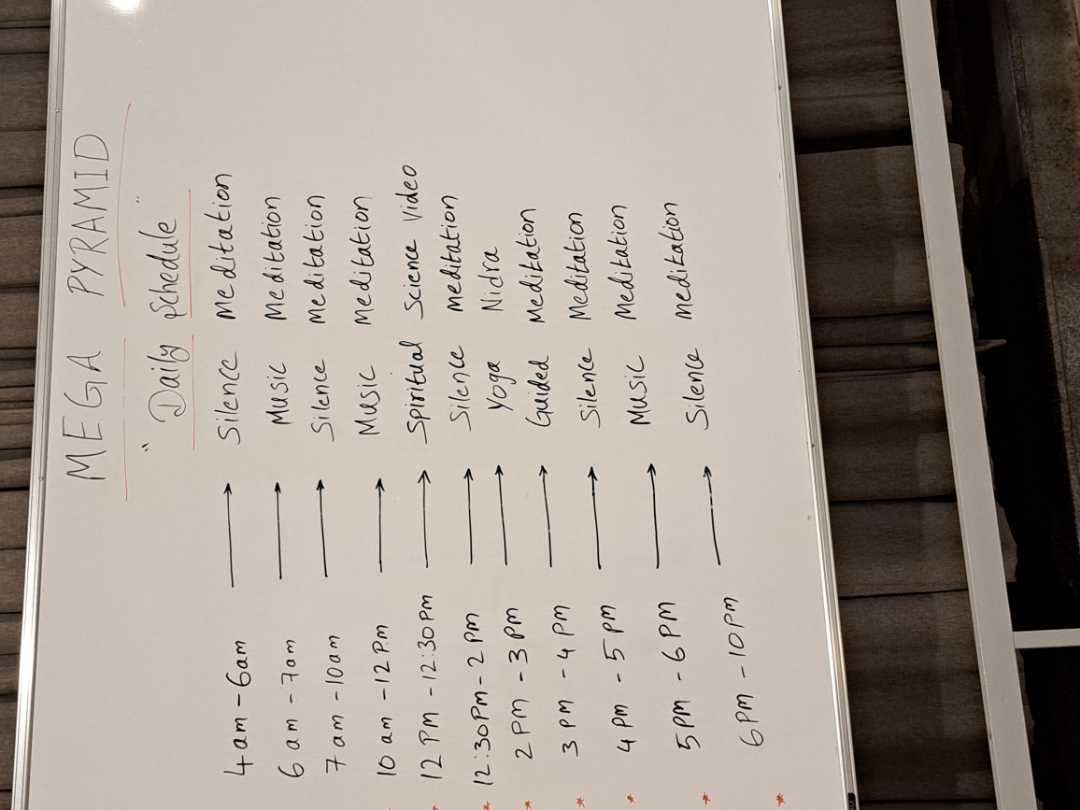 MEGA PYRAMID
"Daily Schedule"
4am - 6am → Silence Meditation
6am - 7am → Music Meditation
7am - 10am → Silence Meditation
10am - 12Pm → Music Meditation
* 12 PM - 12:30PM → Spiritual Science Video
* 12:30PM - 2PM → Silence meditation
* 2PM - 3PM → Yoga Nidra
* 3PM - 4PM → Guided Meditation
* 4PM - 5PM → Silence Meditation
* 5PM - 6PM → Music Meditation
* 6PM - 10PM → Silence meditation